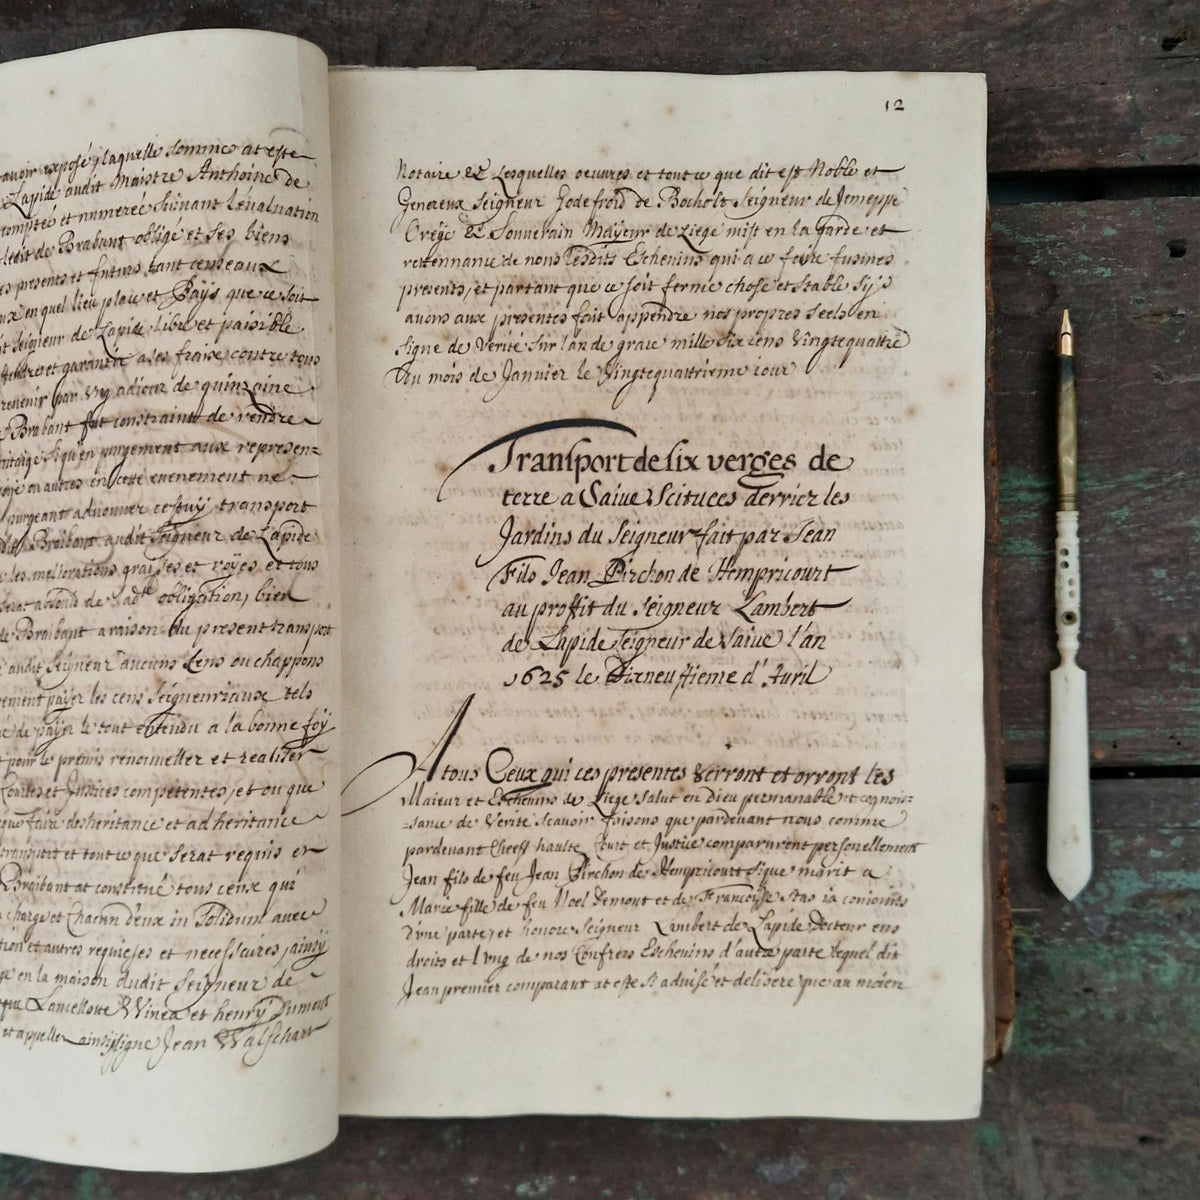 avoir exposé laquelle somme at esté
Lapide audit Maistre Anthoine de
compté et numereé suivant l'evaluation
ledit de Brabant obligé et ses biens
es presents et futurs tant censeaux
en quel lieu place et Pays que ce soit
t seigneur de Lapide libre et paisible
et garandir a ses fraise contre tous
revenir par ung adiour de quinzaine
Brabant fut constraint de rendre
sique en purgement aux represen=
ou autres en cette evenement ne
purgeant advouver cestuy transport
Brabant audit Seigneur de Lapide
les meliorations graisses et royes et tous
serat absoud de ladte obligation, bien
de Braibant a raison du present transport
audit seigneur anciens Cens ou chappons
payer les cens seigneuriaux tels
de payer le tout entendu a la bonne foy
et pour le premis renouveller et realiser
Courtes et Justices competentes, et ou que
faire desheritance et adheritance
transport et tout ce que serat requis et
Braibant at constitué tous ceux qui
charge et Chacun d'eux in Solidum avec
et autres requises et necessaires, ainsy
en la maison dudit Seigneur de
Lancellotte Winea et henry Dumont
et appellez ainsy signé Jean Walschart
12
Notaire &c Lesquelles oeuvres et tout ce que dit est Noble et
Genereux Seigneur Godefroid de Bocholt Seigneur de Jemeppe
Oreye &c Souverain Mayeur de Liege mist en la garde et
rettennance de nous Lesdits Eschevins qui a ce faire fusmes
presents, et partant que ce soit ferme chose et stable sy
avons aux presentes fait appendre nos propres Seels en
signe de Verité sur l'an de grace mille six cens Vingtequattre
Du mois de Janvier le Vingtequattrieme iour
Transport de six verges de
terre a Saive Scituees derrier les
Jardins du Seigneur fait par Jean
Fils Jean Pirchon de Hempricourt
au proffit du Seigneur Lambert
de Lapide Seigneur de Saive l'an
1625 le Dixneuffieme d'Avril
A tous Ceux qui ces presentes Verront et orront les
Maieur et Eschevins de Liege salut en Dieu permanable et cognois=
=sance de Verité Scavoir faisons que pardevant nous comme
pardevant Cheeff haulte Court et Justice comparurent personellement
Jean fils de feu Jean Pirchon de Hempricourt sique marit a
Marie fille de feu Noel Demont et de Francoise Stas ia conioints
D'une parte, et honoré Seigneur Lambert de Lapide Docteur ens
droits et l'ung de nos Confrers Eschevins d'autre parte Lequel dit
Jean premier comparant at esté sy advisé et deliberé que au moien